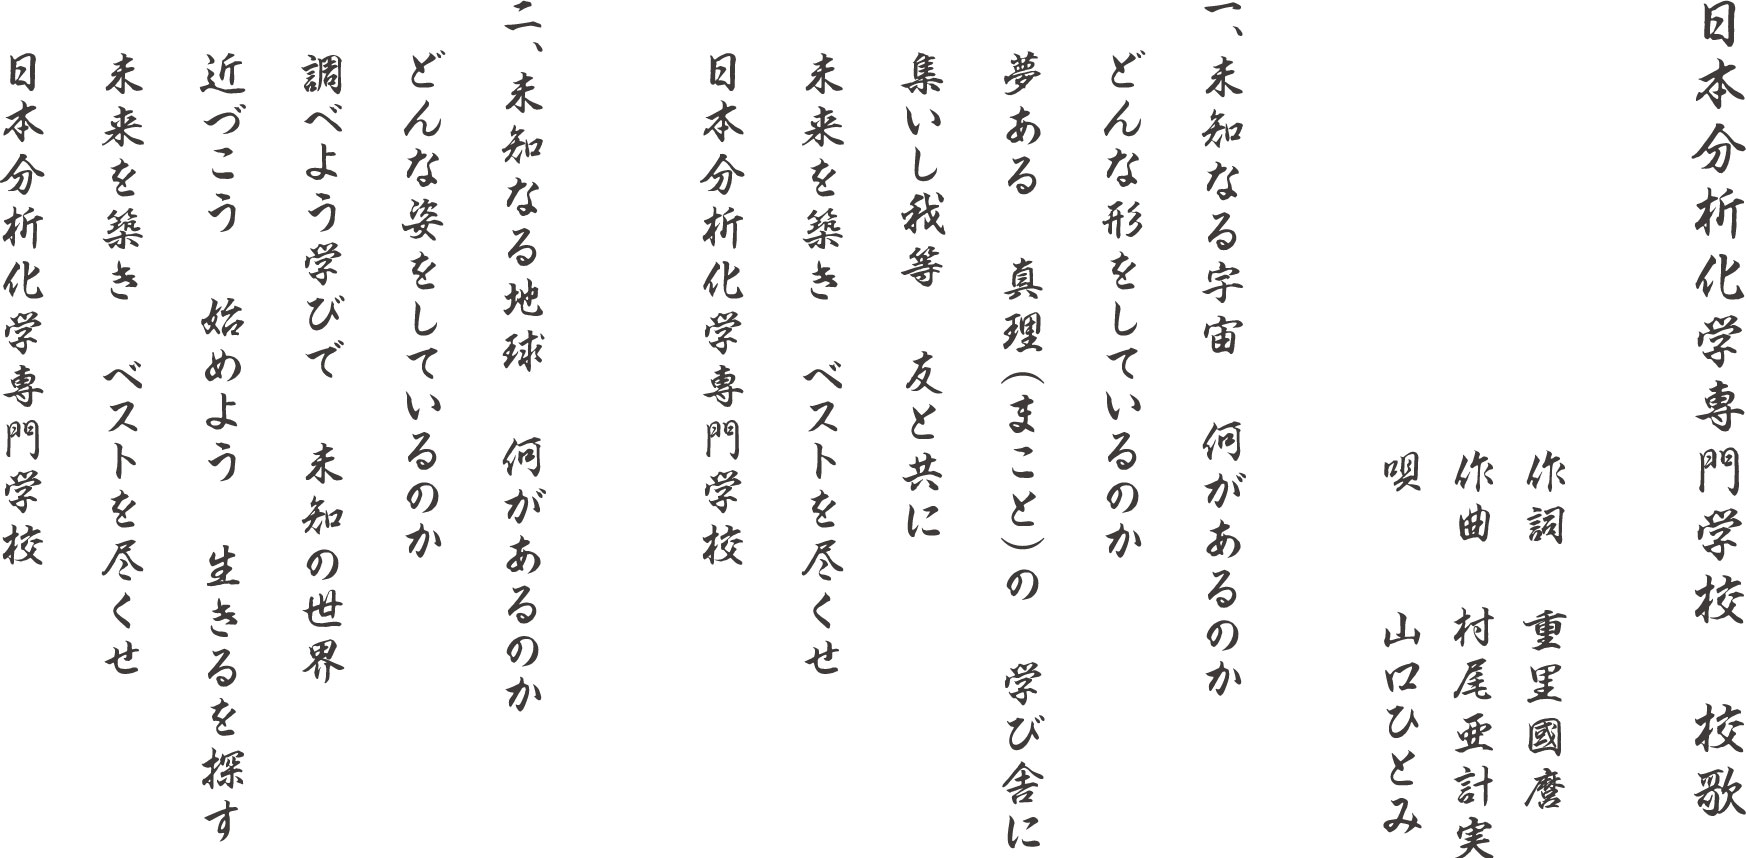 日本分析化学専門学校　校歌
作詞　重里國麿
作曲　村尾亜計実
唄　山口ひとみ
一、未知なる宇宙　何があるのか
どんな形をしているのか
夢ある　真理（まこと）の　学び舎に
集いし我等　友と共に
未来を築き　ベストを尽くせ
日本分析化学専門学校
二、未知なる地球　何があるのか
どんな姿をしているのか
調べよう学びで　未知の世界
近づこう　始めよう　生きるを探す
未来を築き　ベストを尽くせ
日本分析化学専門学校